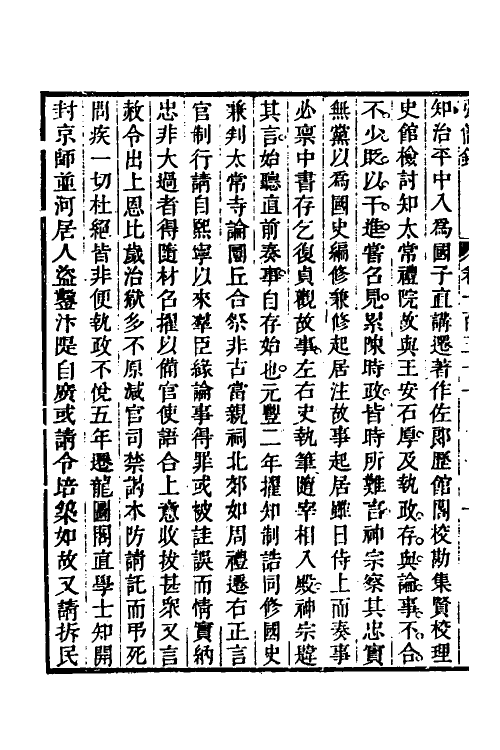 知治平中入爲國子直講遷著作佐郎歷館閣校勘集賢校理
史館檢討知太常禮院故與王安石厚及執政存與論事不合
不少貶以干進嘗召見累陳時政皆時所難言神宗察其忠實
無黨以爲國史編修兼修起居注故事起居雖日侍上而奏事
必稟中書存乞復貞觀故事左右史執筆隨宰相入殿神宗韙
其言始聽直前奏事自存始也元豐二年擢知制誥同修國史
兼判太常寺論圜丘合祭非古當親祠北郊如周禮遷右正言
官制行請自熙寧以來羣臣緣論事得罪或被詿誤而情實納
忠非大過者得隨材召擢以備官使語合上意收拔甚衆又言
赦令出上恩比歲治獄多不原減官司禁謁本防請託而弔死
問疾一切杜絕皆非便執政不悅五年遷龍圖閣直學士知開
封京師並河居人盜鑿汴隄自廣或請令培築如故又請拆民